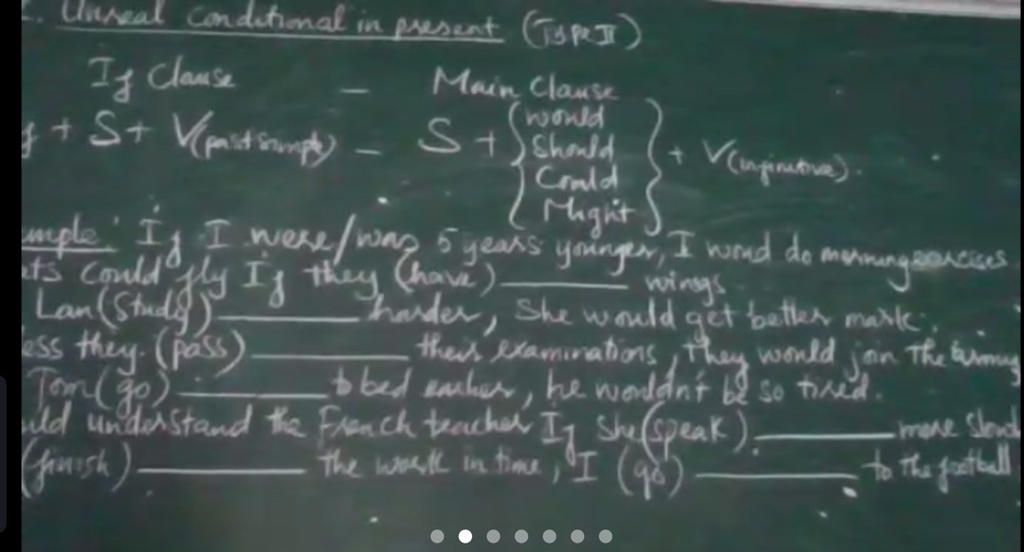 . Unreal Conditional in present (Type II)
If Clause — Main Clause
+ S + V(past simple) – S + { would Should Could Might } + V(infinitive).
mple: If I were/was 5 years younger, I would do morning exercises
ts could fly If they (have) ______ wings
Lan (Study) ______ harder, She would get better mark.
ess they. (pass) ______ their examinations, they would join The
Tom (go) ______ to bed earlier, he wouldn't be so tired.
uld understand the French teacher If She (speak). ______ more Slowl
(finish) ______ The work in time, I (go) ______ to the football